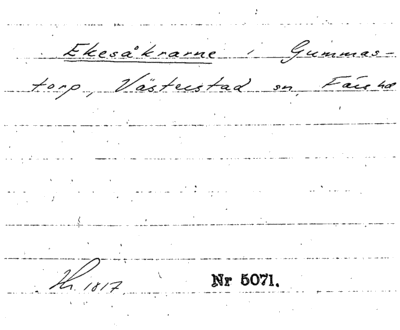 Ekesåkrarne i Gummas-
torp, Västerstad sn, Färs hd
1817. Nr 5071.